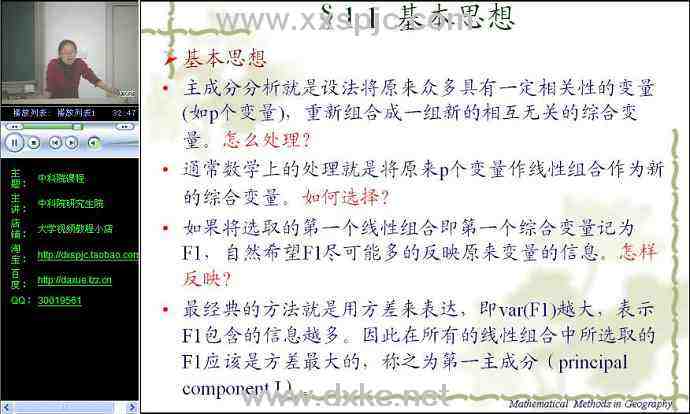 §1.1 基本思想
www.xxspjc.com
基本思想
• 主成分分析就是设法将原来众多具有一定相关性的变量
(如p个变量)，重新组合成一组新的相互无关的综合变
量。怎么处理?
• 通常数学上的处理就是将原来p个变量作线性组合作为新
的综合变量。如何选择?
• 如果将选取的第一个线性组合即第一个综合变量记为
F1，自然希望F1尽可能多的反映原来变量的信息。怎样
反映?
• 最经典的方法就是用方差来表达，即var(F1)越大，表示
F1包含的信息越多。因此在所有的线性组合中所选取的
F1应该是方差最大的，称之为第一主成分（principal
component I）
www.dxke.net
Mathematical Methods in Geography
播放列表: 播放列表1 32:47
主题: 中科院课程
主讲: 中科院研究生院
店铺: 大学视频教程小店
淘宝: http://dxspjc.taobao.com
百度: http://daxue.tzz.cn
QQ: 30019561